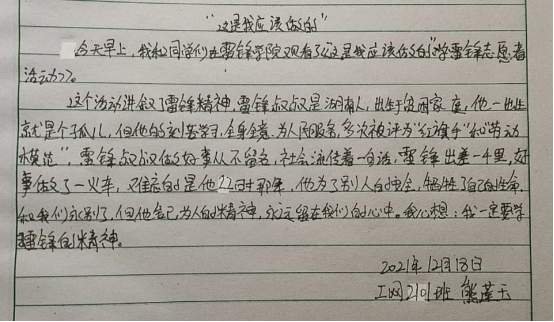 “这是我应该做的”
今天早上，我和同学们在雷锋学院观看了《这是我应该做的“学雷锋志愿者
活动》。
这个活动讲叙了雷锋精神，雷锋叔叔是湖南人，出生于贫困家庭，他一出生
就是个孤儿，但他能刻苦学习，全身全意为人民服务，多次被评为“红旗手”和“劳动
模范”，雷锋叔叔做好事从不留名，社会流传着一句话，雷锋出差一千里，好
事做了一火车，难忘的是他22日时那年，他为了别人的安全，牺牲了自己的生命，
和我们永别了，但他舍己为人的精神，永远留在我们的心中。我心想：我一定要学
雷锋的精神。
2021年12月18日
工网2101班 熊莲玉